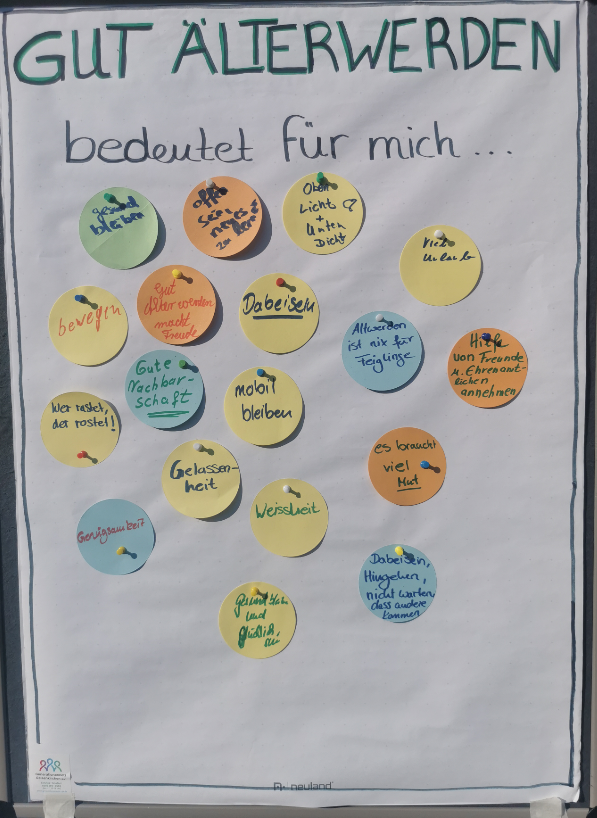 GUT ÄLTERWERDEN
bedeutet für mich ...
gesund
bleiben
offen
sein
neues
zu
Oben
Licht
+
Unten
Dicht
viel
Urlaub
bewegen
Gut
Älterwerden
macht
Freude
Dabeisein
Altwerden
ist nix für
Feiglinge
Hilfe
von Freunde
u. Ehrenamt-
lichen
annehmen
Gute
Nachbar-
schaft
mobil
bleiben
Wer rastet,
der rostet!
Gelassen-
heit
es braucht
viel
Mut
Weissheit
Genügsamkeit
Dabeisein,
Hingehen,
nicht warten,
dass andere
kommen
und
glücklich
neuland